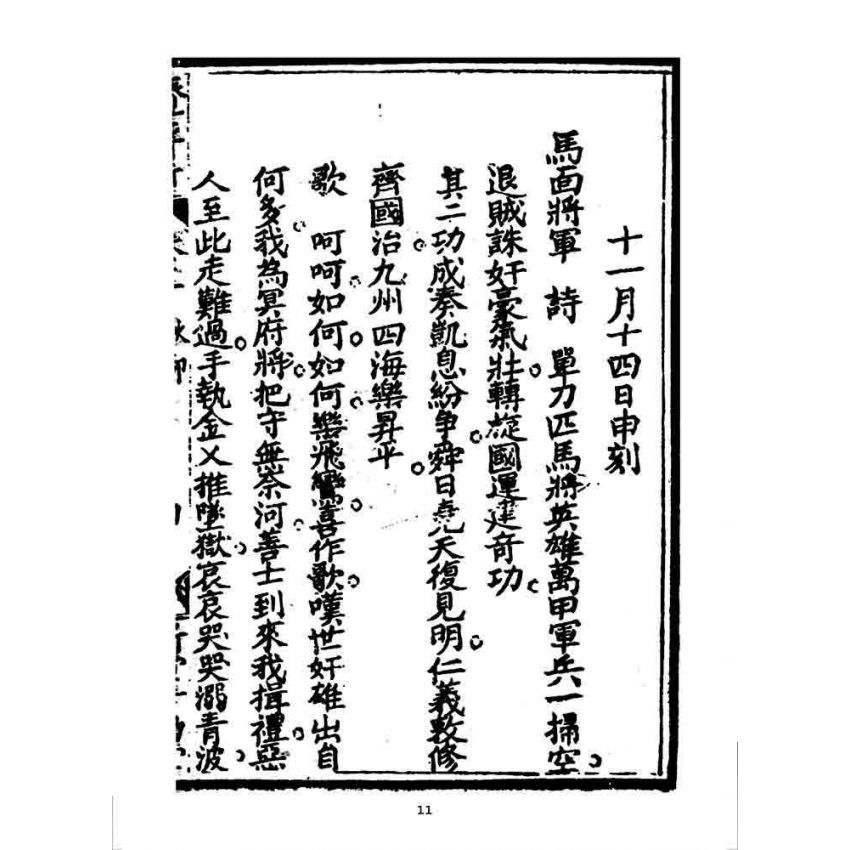 十一月十四日申刻
馬面將軍　詩　單刀匹馬將英雄萬甲軍兵一掃空。
退賊誅奸豪氣壯。轉旋國運建奇功。
其二功成奏凱息紛争。舜日堯天復見明。仁義敦修
齊國治。九州四海樂昇平。
歌　呵呵。如何。如何。樂飛鸞。善作歌。嘆世奸雄出自
何多。我為冥府將。把守無奈河。善士到來我揖禮。惡
人至此走難過。手執金乂推墜獄。哀哀哭哭溺青波。
11